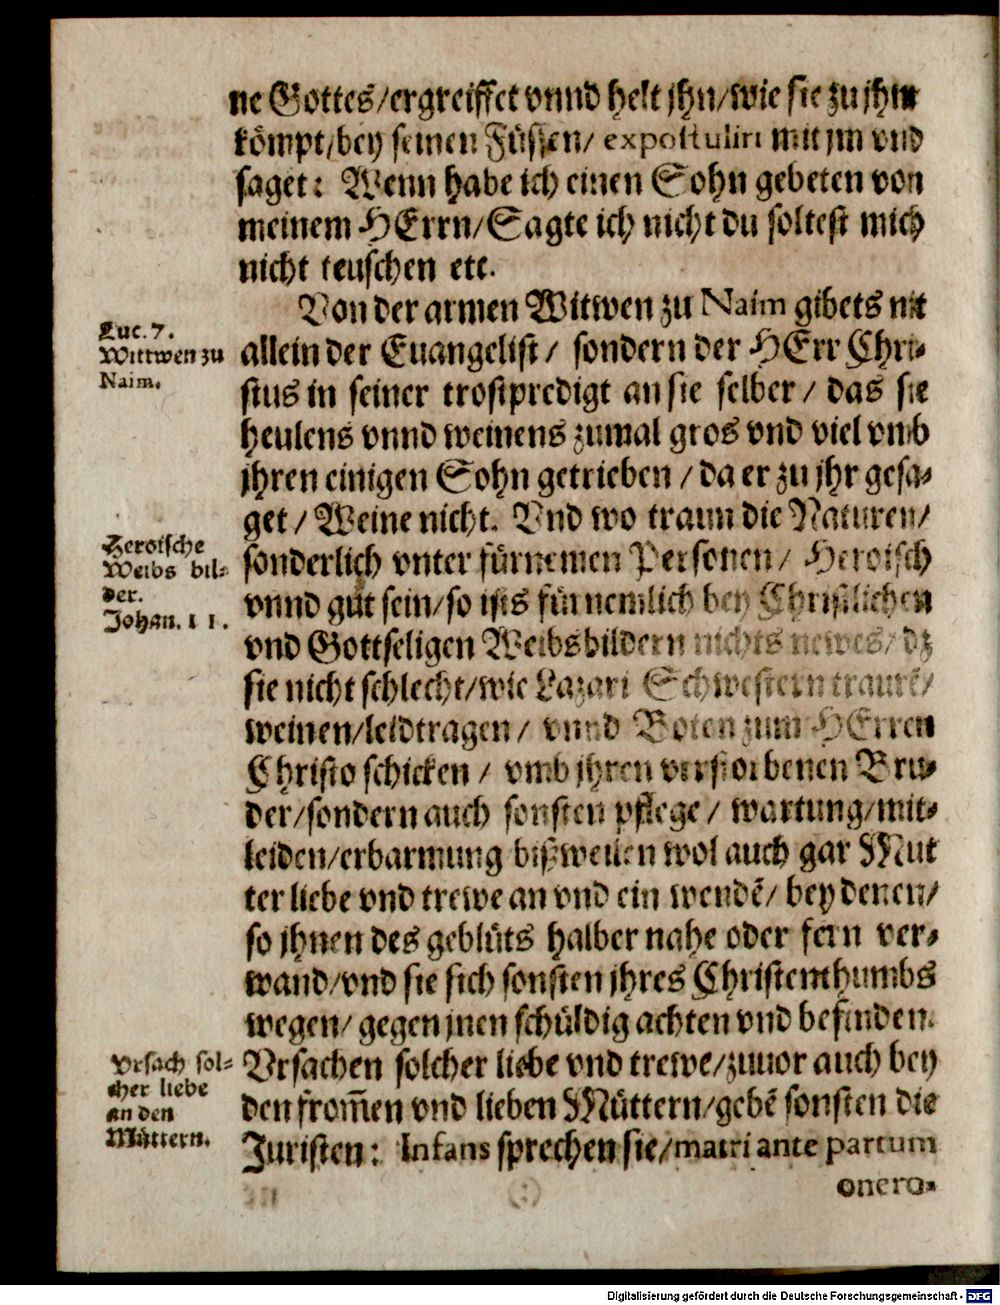 ne Gottes/ergreiffet vnnd helt jhn/wie sie zu jhm
kömpt/bey seinen Füssen/ expostulirt mit jm vnd
saget: Wenn habe ich einen Sohn gebeten von
meinem HErrn/Sagte ich nicht du soltest mich
nicht teuschen etc.
Von der armen Witwen zu Naim gibets nit
Luc. 7.
Wittwen zu
Naim.
allein der Euangelist/ sondern der HErr Chri-
stus in seiner trostpredigt an sie selber/ das sie
heulens vnnd weinens zumal gros vnd viel vmb
jhren einigen Sohn getrieben/da er zu jhr gesa-
get/Weine nicht. Vnd wo traun die Naturen/
Heroische
Weibs bil-
der.
Johan. 11.
sonderlich vnter fürnemen Personen/ Heroisch
vnnd gut sein/so ists fürnemlich bey Christlichen
vnd Gottseligen Weibsbildern nichts newes/dz
sie nicht schlecht/wie Lazari Schwestern traurẽ/
weinen/leidtragen/ vnnd Boten zum HErren
Christo schicken/ vmb jhren verstorbenen Bru-
der/sondern auch sonsten pflege/ wartung/mit-
leiden/erbarmung bißweilen wol auch gar Mut
ter liebe vnd trewe an vnd ein wendẽ/bey denen/
so jhnen des geblüts halber nahe oder fern ver-
wand/vnd sie sich sonsten jhres Christenthumbs
wegen/gegen jnen schüldig achten vnd befinden.
Vrsach sol-
cher liebe
an den
Müttern.
Vrsachen solcher liebe vnd trewe/zuuor auch bey
den from̃en vnd lieben Müttern/gebẽ sonsten die
Juristen: Infans sprechen sie/matri ante partum
onero-